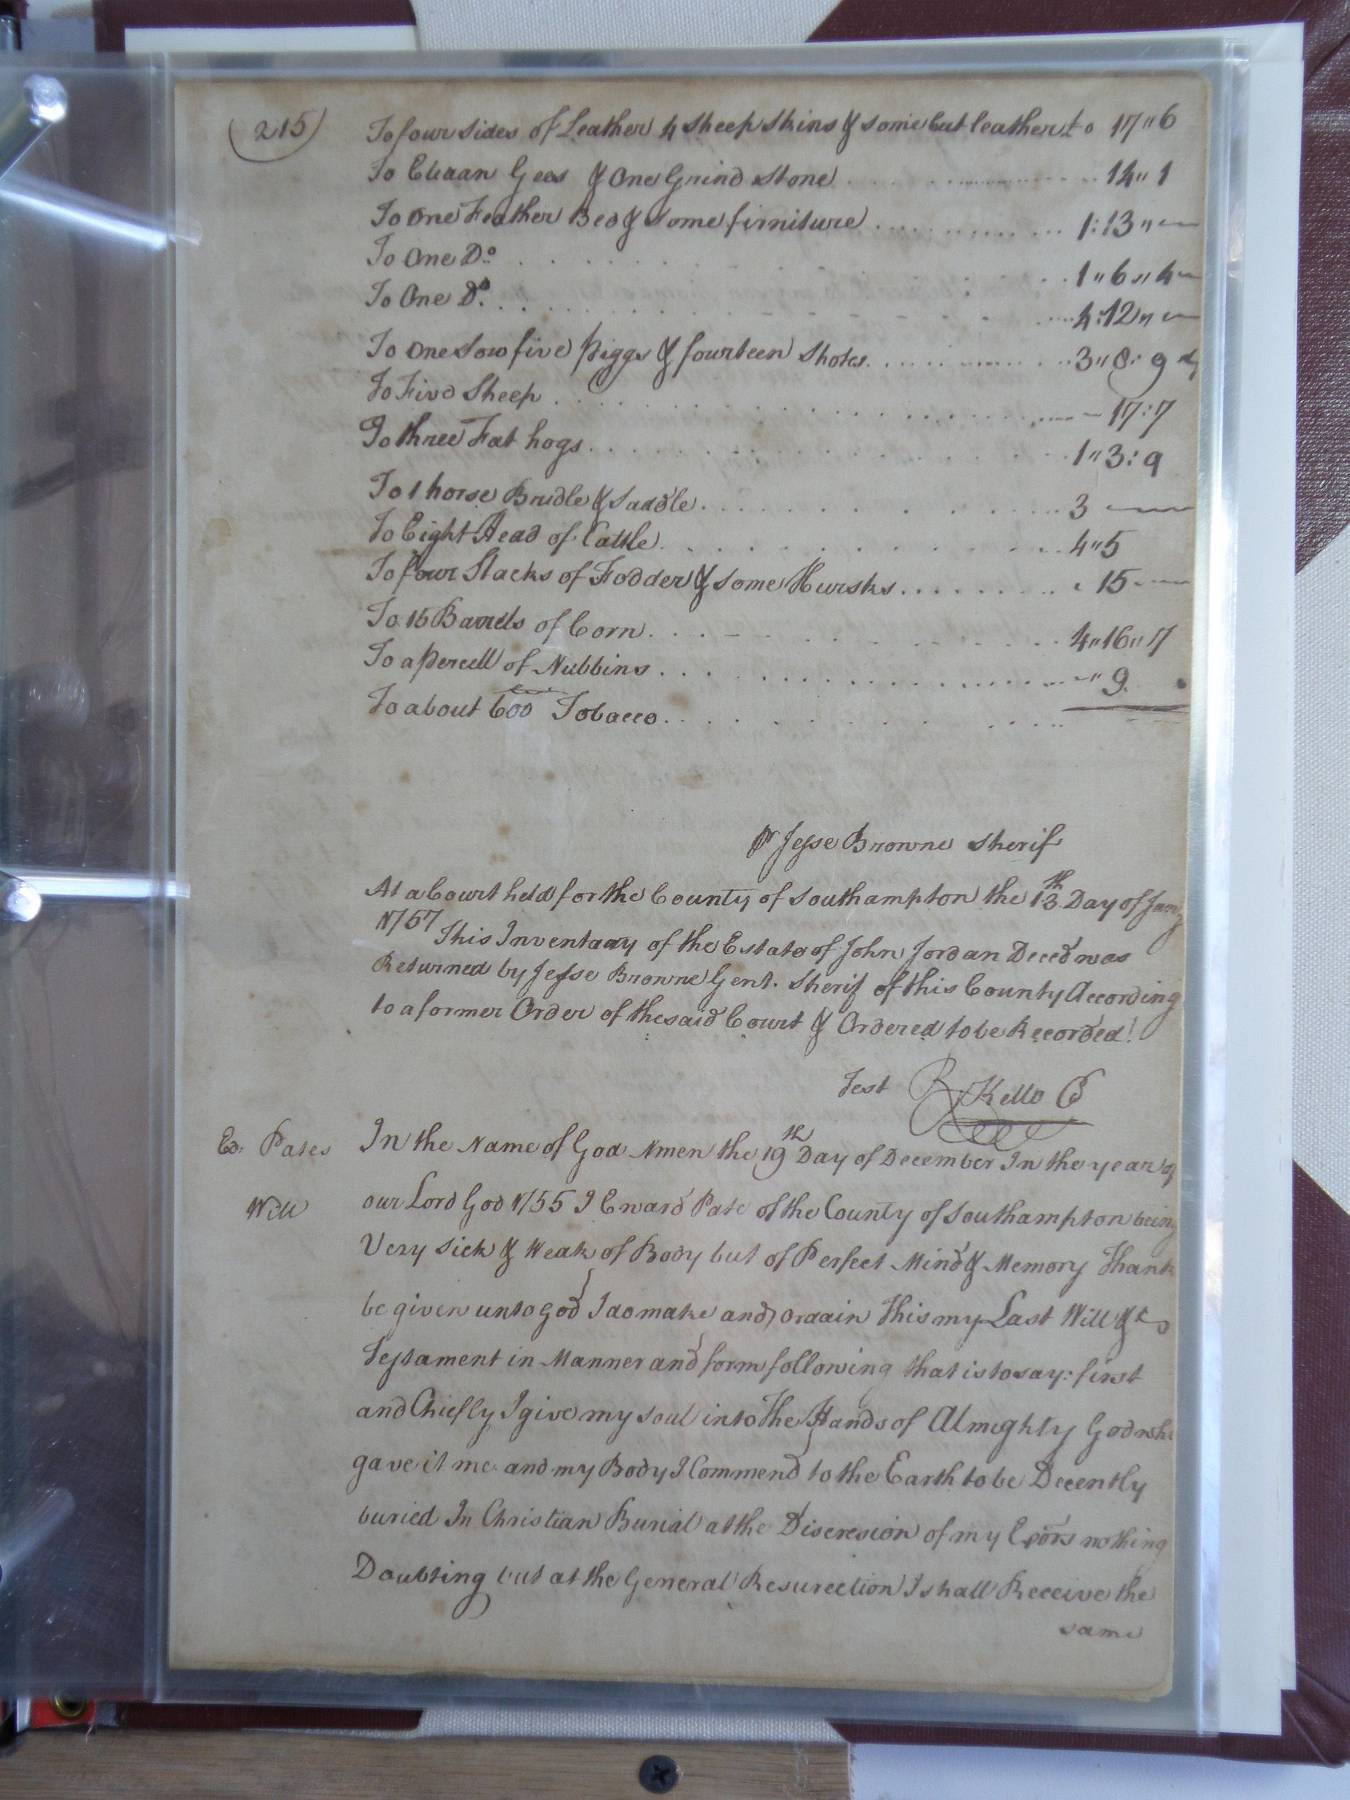 (215)
To four sides of Leather 4 Sheep Skins & some cut leather to 17"6
To Elaan Gees & One Grind stone 14"1
To One Feather Bed & some firniture 1:13"
To One Do. 1"6"4
To One Do. 4:12"
To One Sow five Piggs & fourteen Shotes 3"8:9
To Five Sheep 17:7
To three Fat hogs 1"3:9
To 1 horse Bridle & Saddle 3
To Eight Head of Cattle 4"5
To four Stacks of Fodder & some Hursks 15
To 15 Barrels of Corn 4"16"7
To a percell of Nubbins " 9
To about 600 Tobacco
Pr Jesse Browne Sherif
At a Court held for the County of Southampton the 13th Day of Jany
1757 This Inventary of the Estate of John Jordan Deced was
Returned by Jesse Browne Gent. Sherif of this County According
to a former Order of the said Court & Ordered to be Recorded
Test R Kello
Ed: Pates
Will
In the Name of God Amen the 19th Day of December In the year of
our Lord God 1755 I Edward Pate of the County of Southampton being
Very Sick & Weak of Body but of Perfect Mind & Memory Thank
be given unto God I do make and ordain this my Last Will &
Testament in Manner and form following that is to say: first
and Chiefly I give my soul into The Hands of Almeghty God who
gave it me and my Body I Commend to the Earth to be Decently
buried In Christian Burial at the Discresion of my Exors nothing
Doubting but at the General Resurection I shall Receive the
same